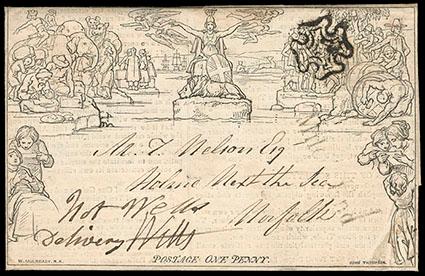 Mr T. Nelson Esq
Holme Next the Sea
Norfolk
Not Wells
Delivery Wells
POSTAGE ONE PENNY.
W. MULREADY, R.A.
JOHN THOMPSON.